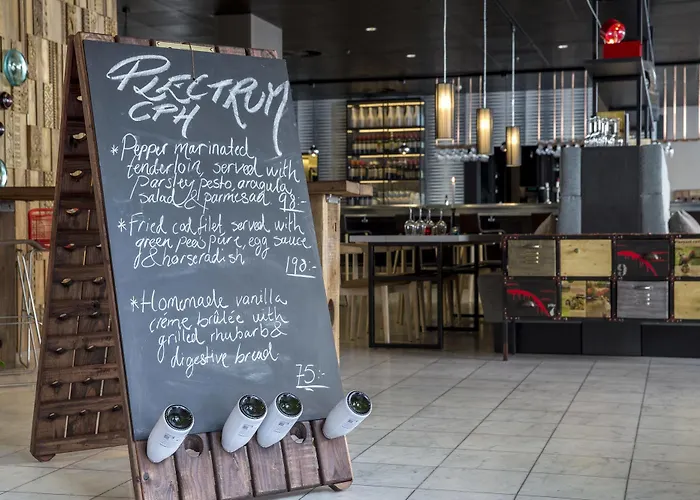 PLECTRUM
CPH
*Pepper marinated
tenderloin served with
Parsley pesto, arogula
Salad & parmesan 98:-
*Fried cod filet, served with
green peas pure, egg sauce
& horseradish 198:-
*Homemade vanilla
créme brûlée with
grilled rhubarb &
digestive bread
75:-